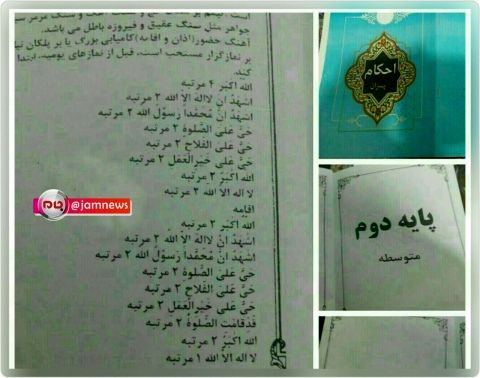 است. تیمم بر
جواهر مثل سنگ عقیق و فیروزه باطل می باشد.
آهنگ حضور(اذان و اقامه)
بر نمازگزار مستحب است، قبل از نمازهای یومیه، ابتدا
کند
الله اکبر ۴ مرتبه
اشهد ان لااله الا الله ۲ مرتبه
اشهد ان محمدا رسول الله ۲ مرتبه
حی علی الصلوة ۲ مرتبه
حی علی الفلاح ۲ مرتبه
حی علی خیرالعمل ۲ مرتبه
الله اکبر ۲ مرتبه
لا اله الا الله ۲ مرتبه
اقامه
الله اکبر ۲ مرتبه
اشهد ان لااله الا الله ۲ مرتبه
اشهد ان محمدا رسول الله ۲ مرتبه
حی علی الصلوة ۲ مرتبه
حی علی الفلاح ۲ مرتبه
حی علی خیرالعمل ۲ مرتبه
قدقامت الصلوة ۲ مرتبه
الله اکبر ۲ مرتبه
لا اله الا الله ۱ مرتبه
احکام
پسران
پایه دوم
متوسطه
جام @jamnews